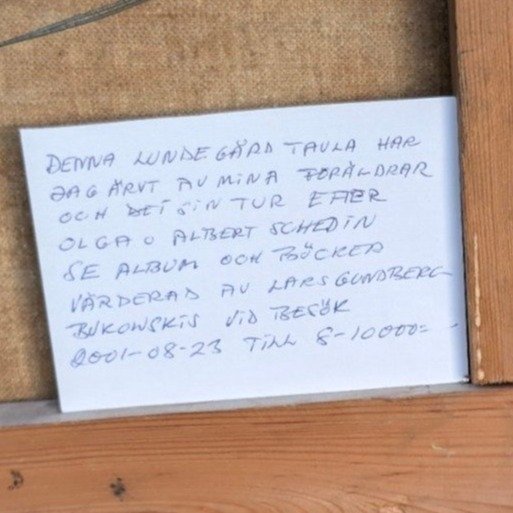 DENNA LUNDEGÅRD TAVLA HAR
JAG ÄRVT AV MINA FÖRÄLDRAR
OCH DE I SIN TUR EFTER
OLGA O ALBERT SCHEDIN
SE ALBUM OCH BÖCKER
VÄRDERAD AV LARS GUNDBERG
BUKOWSKIS VID BESÖK
2001-08-23 TILL 8-10000:-